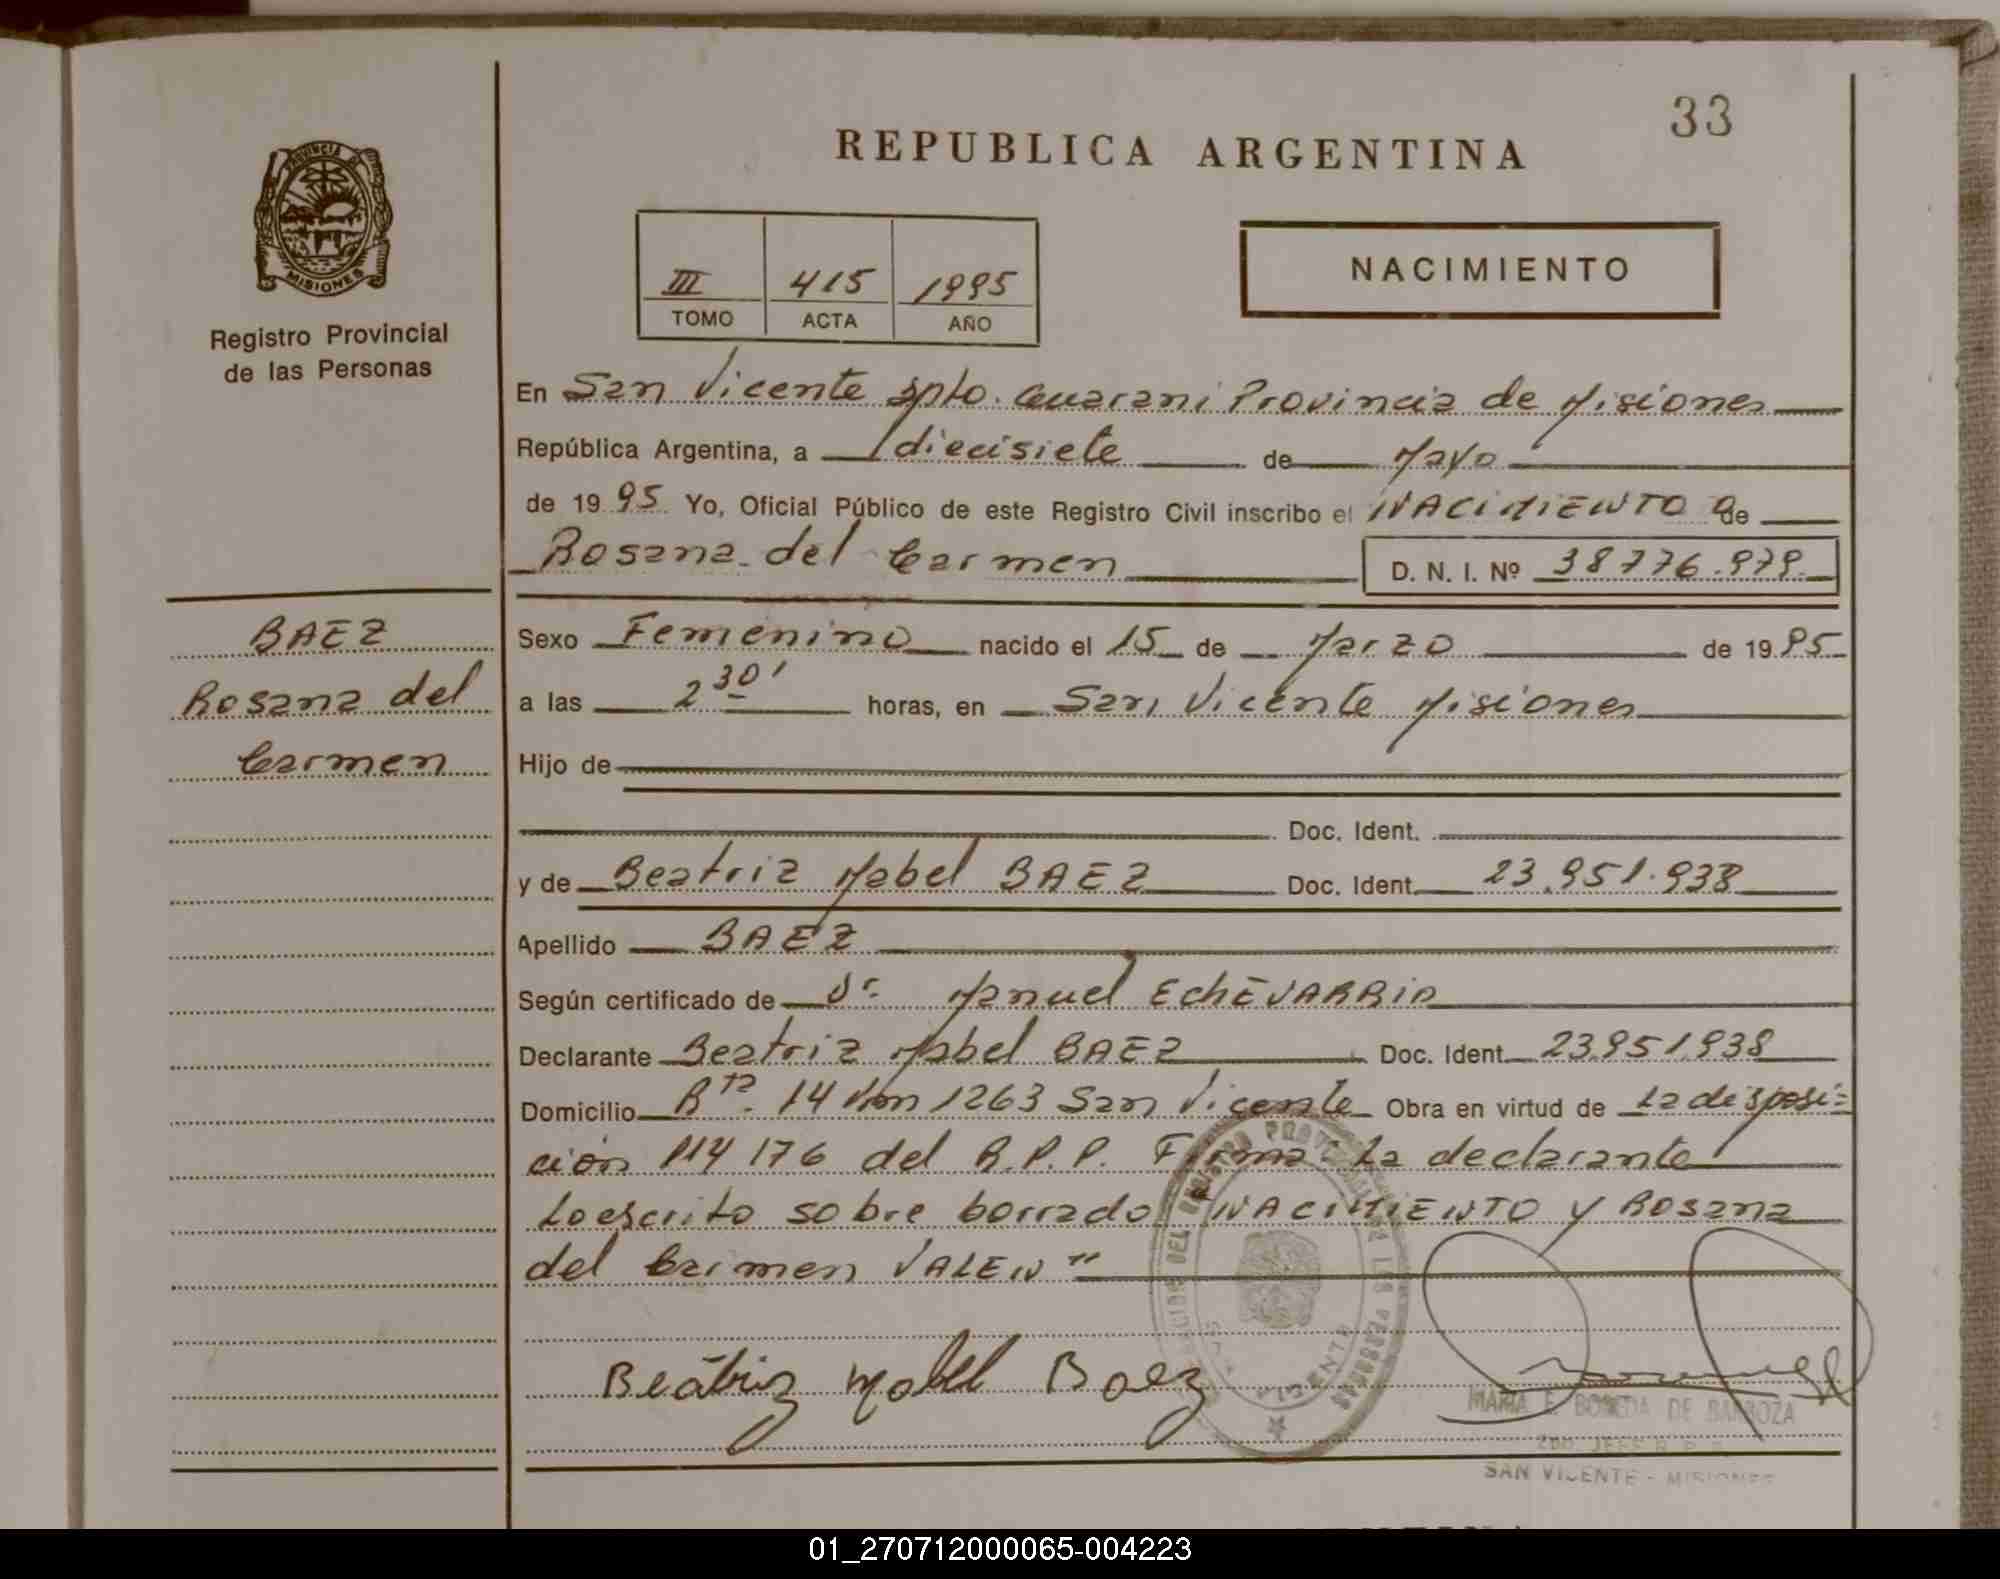 33
REPUBLICA ARGENTINA
PROVINCIA DE
MISIONES
Registro Provincial
de las Personas
III 415 1995
TOMO ACTA AÑO
NACIMIENTO
En San Vicente Dpto. Guarani Provincia de Misiones
República Argentina, a diecisiete de Mayo
de 1995 Yo, Oficial Público de este Registro Civil inscribo el NACIMIENTO de
Rosana del Carmen D. N. I. Nº 38776.979
BAEZ
Rosana del
Carmen
Sexo Femenino nacido el 15 de Marzo de 1995
a las 2 30' horas, en San Vicente Misiones
Hijo de
Doc. Ident.
y de Beatriz Mabel BAEZ Doc. Ident. 23.951.938
Apellido BAEZ
Según certificado de Dr. Manuel ECHEVARRIA
Declarante Beatriz Mabel BAEZ Doc. Ident. 23.951.938
Domicilio Rta. 14 Km 1263 San Vicente Obra en virtud de La disposi=
ción 114/76 del R.P.P. Firma: La declarante
Lo escrito sobre borrado "NACIMIENTO y Rosana
del Carmen VALEN"
Beatriz Mabel Baez
SAN VICENTE
MARIA E. DE BARBOZA
2DO. JEFE R. P. P.
SAN VICENTE - MISIONES
01_270712000065-004223